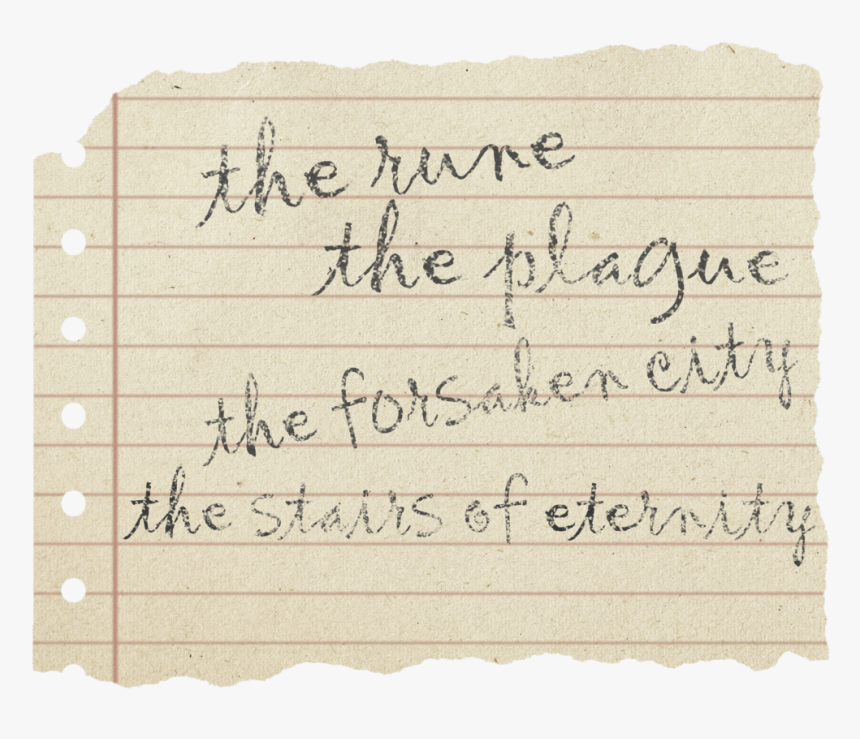 the rune
the plague
the forsaken city
the stairs of eternity